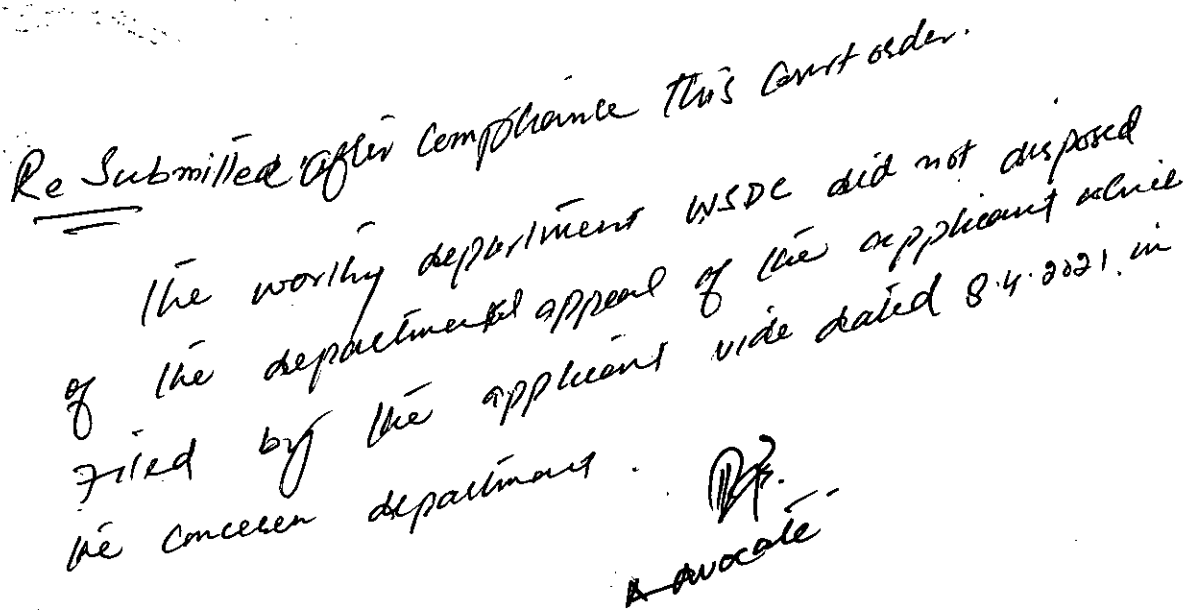 Re Submitted after Compliance this Court order.
The worthy department WSDC did not disposed
of the departmental appeal of the applicant which
Filed by the applicant vide dated 8.4.2021 in
the concern department.
Advocate